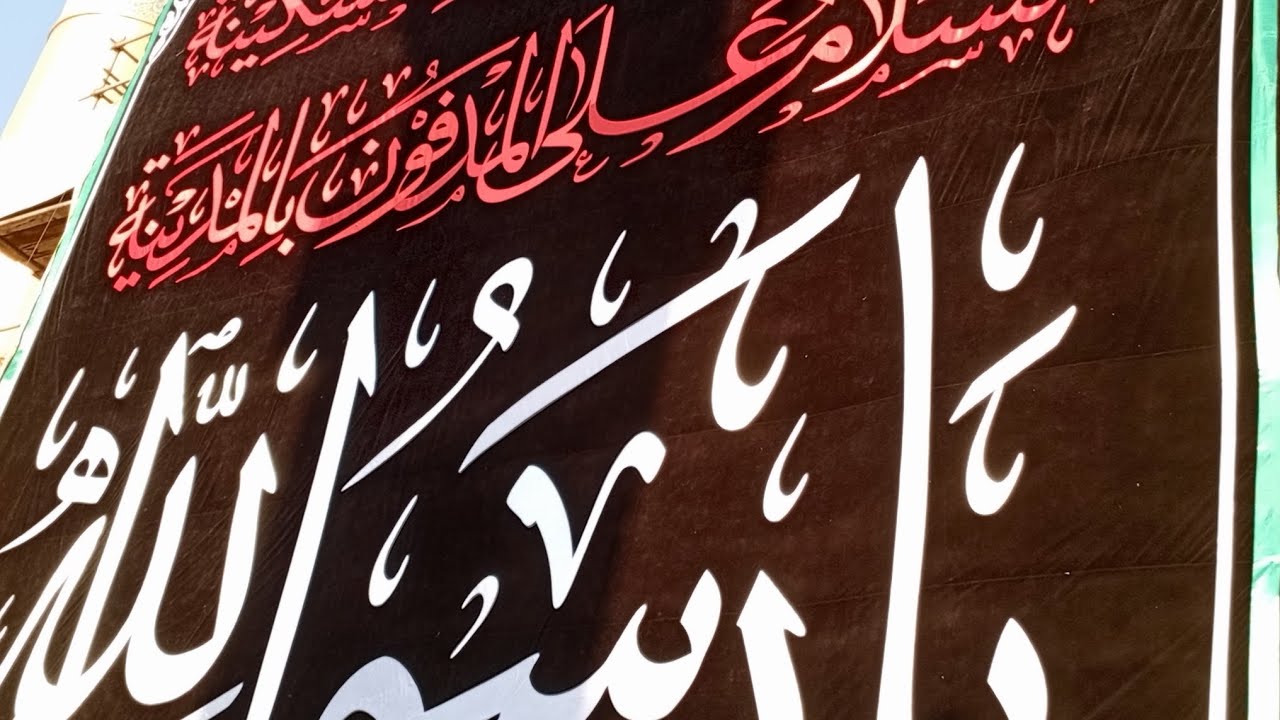 السكينة
السلام على المدفون بالمدينة
يا رسول الله